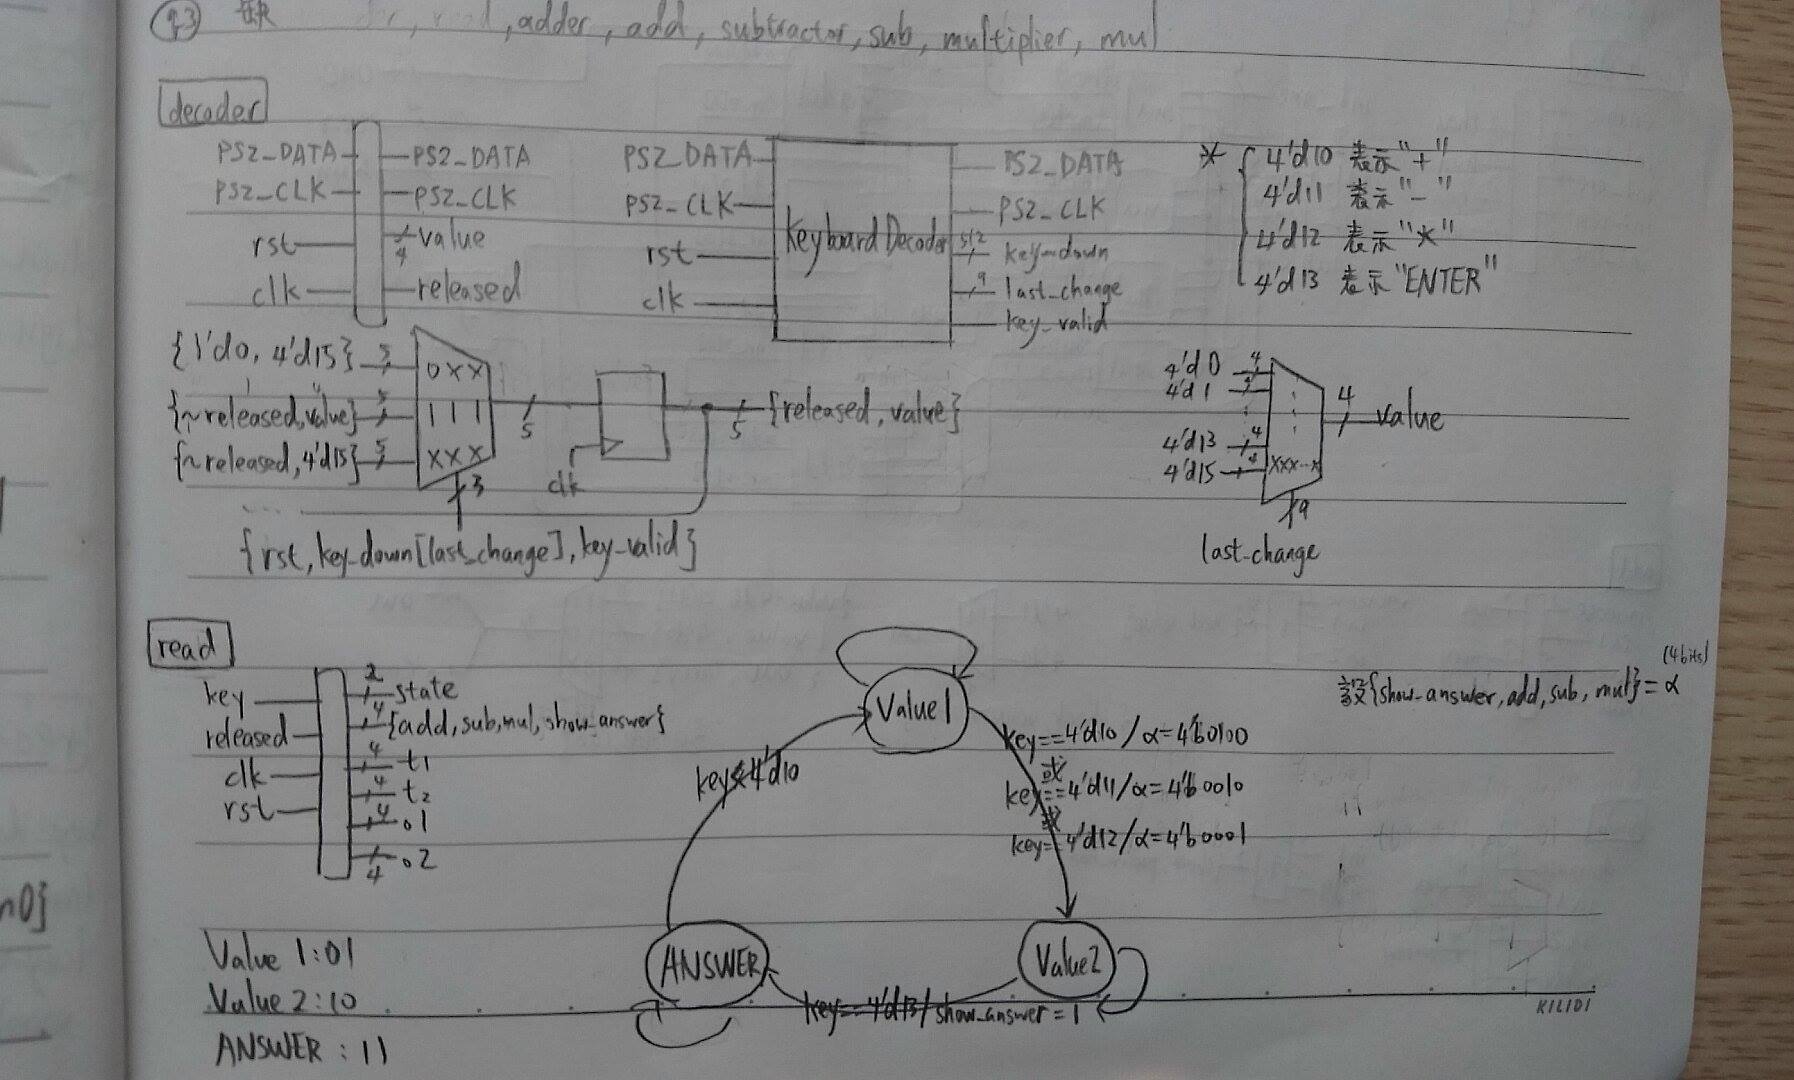 93 缺 , read , adder , add , subtractor , sub , multiplier , mul
decoder
PS2_DATA
PS2_CLK
rst
clk
PS2_DATA
PS2_CLK
4
value
released
PS2_DATA
PS2_CLK
rst
clk
KeyboardDecoder
PS2_DATA
PS2_CLK
512
key_down
9
last_change
key_valid
* 4'd10 表示"+"
4'd11 表示"-"
4'd12 表示"*"
4'd13 表示"ENTER"
{1'd0, 4'd15} 5
{~released,value} 5
{~released,4'd15} 5
0XX
111
XXX
3
5
clk
5
{released, value}
{rst, key_down[last_change], key_valid}
4'd0 4
4'd1 4
4'd13 4
4'd15 4
XXX--X
9
last_change
4
value
read
key
released
clk
rst
2 state
4 {add,sub,mul,show_answer}
4 t1
4 t2
4 o1
4 o2
Value1
key<4'd10
key==4'd10/α=4'b0100
或
key==4'd11/α=4'b0010
或
key==4'd12/α=4'b0001
設{show_answer, add, sub, mul}=α (4bits)
ANSWER
Value2
key==4'd13/show_answer=1
Value 1:01
Value 2:10
ANSWER : 11
KILIDI
n0]